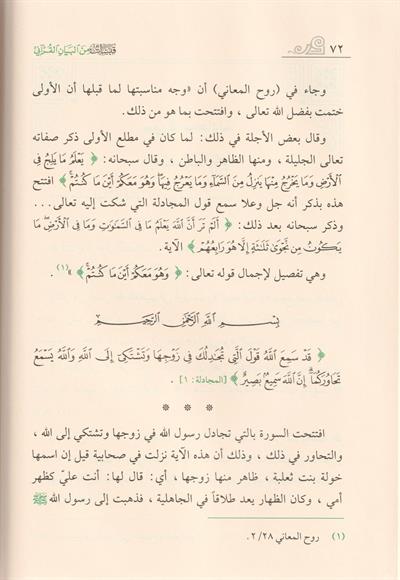 ٧٢
قبسات من البيان القرآني
وجاء في (روح المعاني) أن «وجه مناسبتها لما قبلها أن الأولى
ختمت بفضل الله تعالى ، وافتتحت بما هو من ذلك.
وقال بعض الأجلة في ذلك: لما كان في مطلع الأولى ذكر صفاته
تعالى الجليلة ، ومنها الظاهر والباطن ، وقال سبحانه: ﴿ يَعْلَمُ مَا يَلِجُ فِي
الْأَرْضِ وَمَا يَخْرُجُ مِنْهَا وَمَا يَنزِلُ مِنَ السَّمَاءِ وَمَا يَعْرُجُ فِيهَا وَهُوَ مَعَكُمْ أَيْنَ مَا كُنتُمْ ﴾ افتتح
هذه بذكر أنه جل وعلا سمع قول المجادلة التي شكت إليه تعالى...
وذكر سبحانه بعد ذلك: ﴿ أَلَمْ تَرَ أَنَّ اللَّهَ يَعْلَمُ مَا فِي السَّمَاوَاتِ وَمَا فِي الْأَرْضِ مَا
يَكُونُ مِن نَّجْوَى ثَلَاثَةٍ إِلَّا هُوَ رَابِعُهُمْ ﴾ الآية.
وهي تفصيل لإجمال قوله تعالى: ﴿ وَهُوَ مَعَكُمْ أَيْنَ مَا كُنتُمْ ﴾»(١).
بِسْمِ اللَّهِ الرَّحْمَٰنِ الرَّحِيمِ
﴿ قَدْ سَمِعَ اللَّهُ قَوْلَ الَّتِي تُجَادِلُكَ فِي زَوْجِهَا وَتَشْتَكِي إِلَى اللَّهِ وَاللَّهُ يَسْمَعُ
تَحَاوُرَكُمَا إِنَّ اللَّهَ سَمِيعٌ بَصِيرٌ ﴾ [المجادلة: ١] .
* * *
افتتحت السورة بالتي تجادل رسول الله في زوجها وتشتكي إلى الله ،
والتحاور في ذلك ، وذلك أن هذه الآية نزلت في صحابية قيل إن اسمها
خولة بنت ثعلبة ، ظاهر منها زوجها ، أي: قال لها: أنت عليّ كظهر
أمي ، وكان الظهار يعد طلاقاً في الجاهلية ، فذهبت إلى رسول الله ﷺ
(١) روح المعاني ٢/٢٨ .